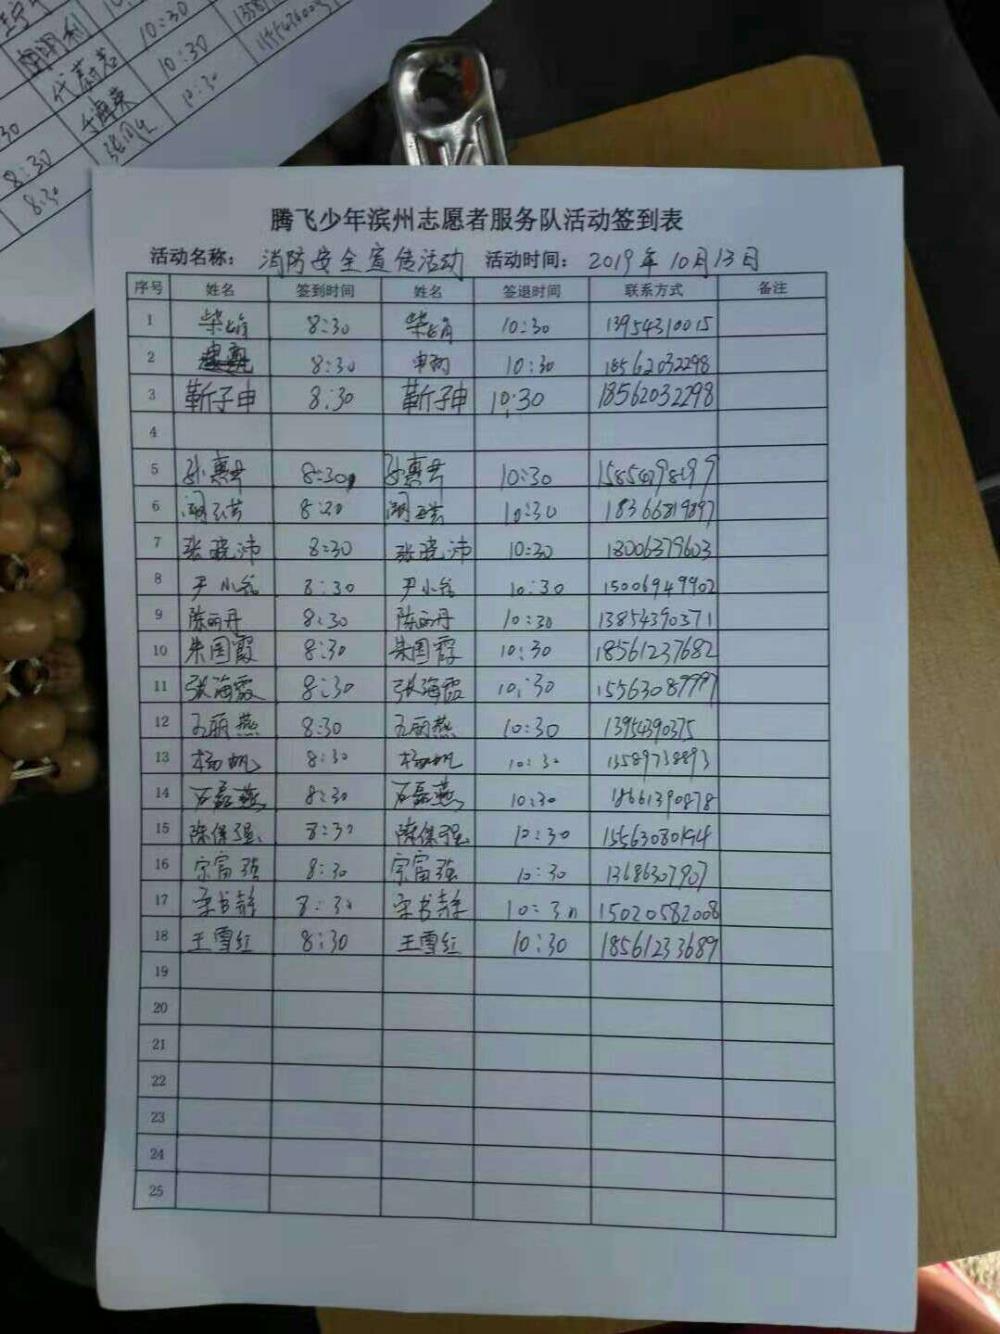 10:30
8:30
8:30
10:30
10:30
腾飞少年滨州志愿者服务队活动签到表
活动名称： 消防安全宣传活动 活动时间： 2019年10月13日
序号 姓名 签到时间 姓名 签退时间 联系方式 备注
1 8:30 10:30 13954310015
2 8:30 10:30 18562032298
3 靳子申 8:30 靳子申 10:30 18562032298
4
5 孙惠 8:30 孙惠 10:30
6 10:30 18366819897
7 张晓沛 8:30 张晓沛 10:30 18006379603
8 尹小 8:30 尹小 10:30 15006949902
9 陈丽丹 8:30 陈丽丹 10:30 13854390371
10 朱国霞 8:30 朱国霞 10:30 18561237682
11 张海霞 8:30 张海霞 10:30 15563089997
12 丽燕 8:30 丽燕 10:30 13954390375
13 杨帆 8:30 杨帆 10:30 13589738893
14 石磊燕 8:30 石磊燕 10:30 18661390878
15 陈保强 8:30 陈保强 10:30 15563080194
16 宗富强 8:30 宗富强 10:30 13686307907
17 宋书静 8:30 宋书静 10:30 15020582008
18 王雪红 8:30 王雪红 10:30 18561233689
19
20
21
22
23
24
25